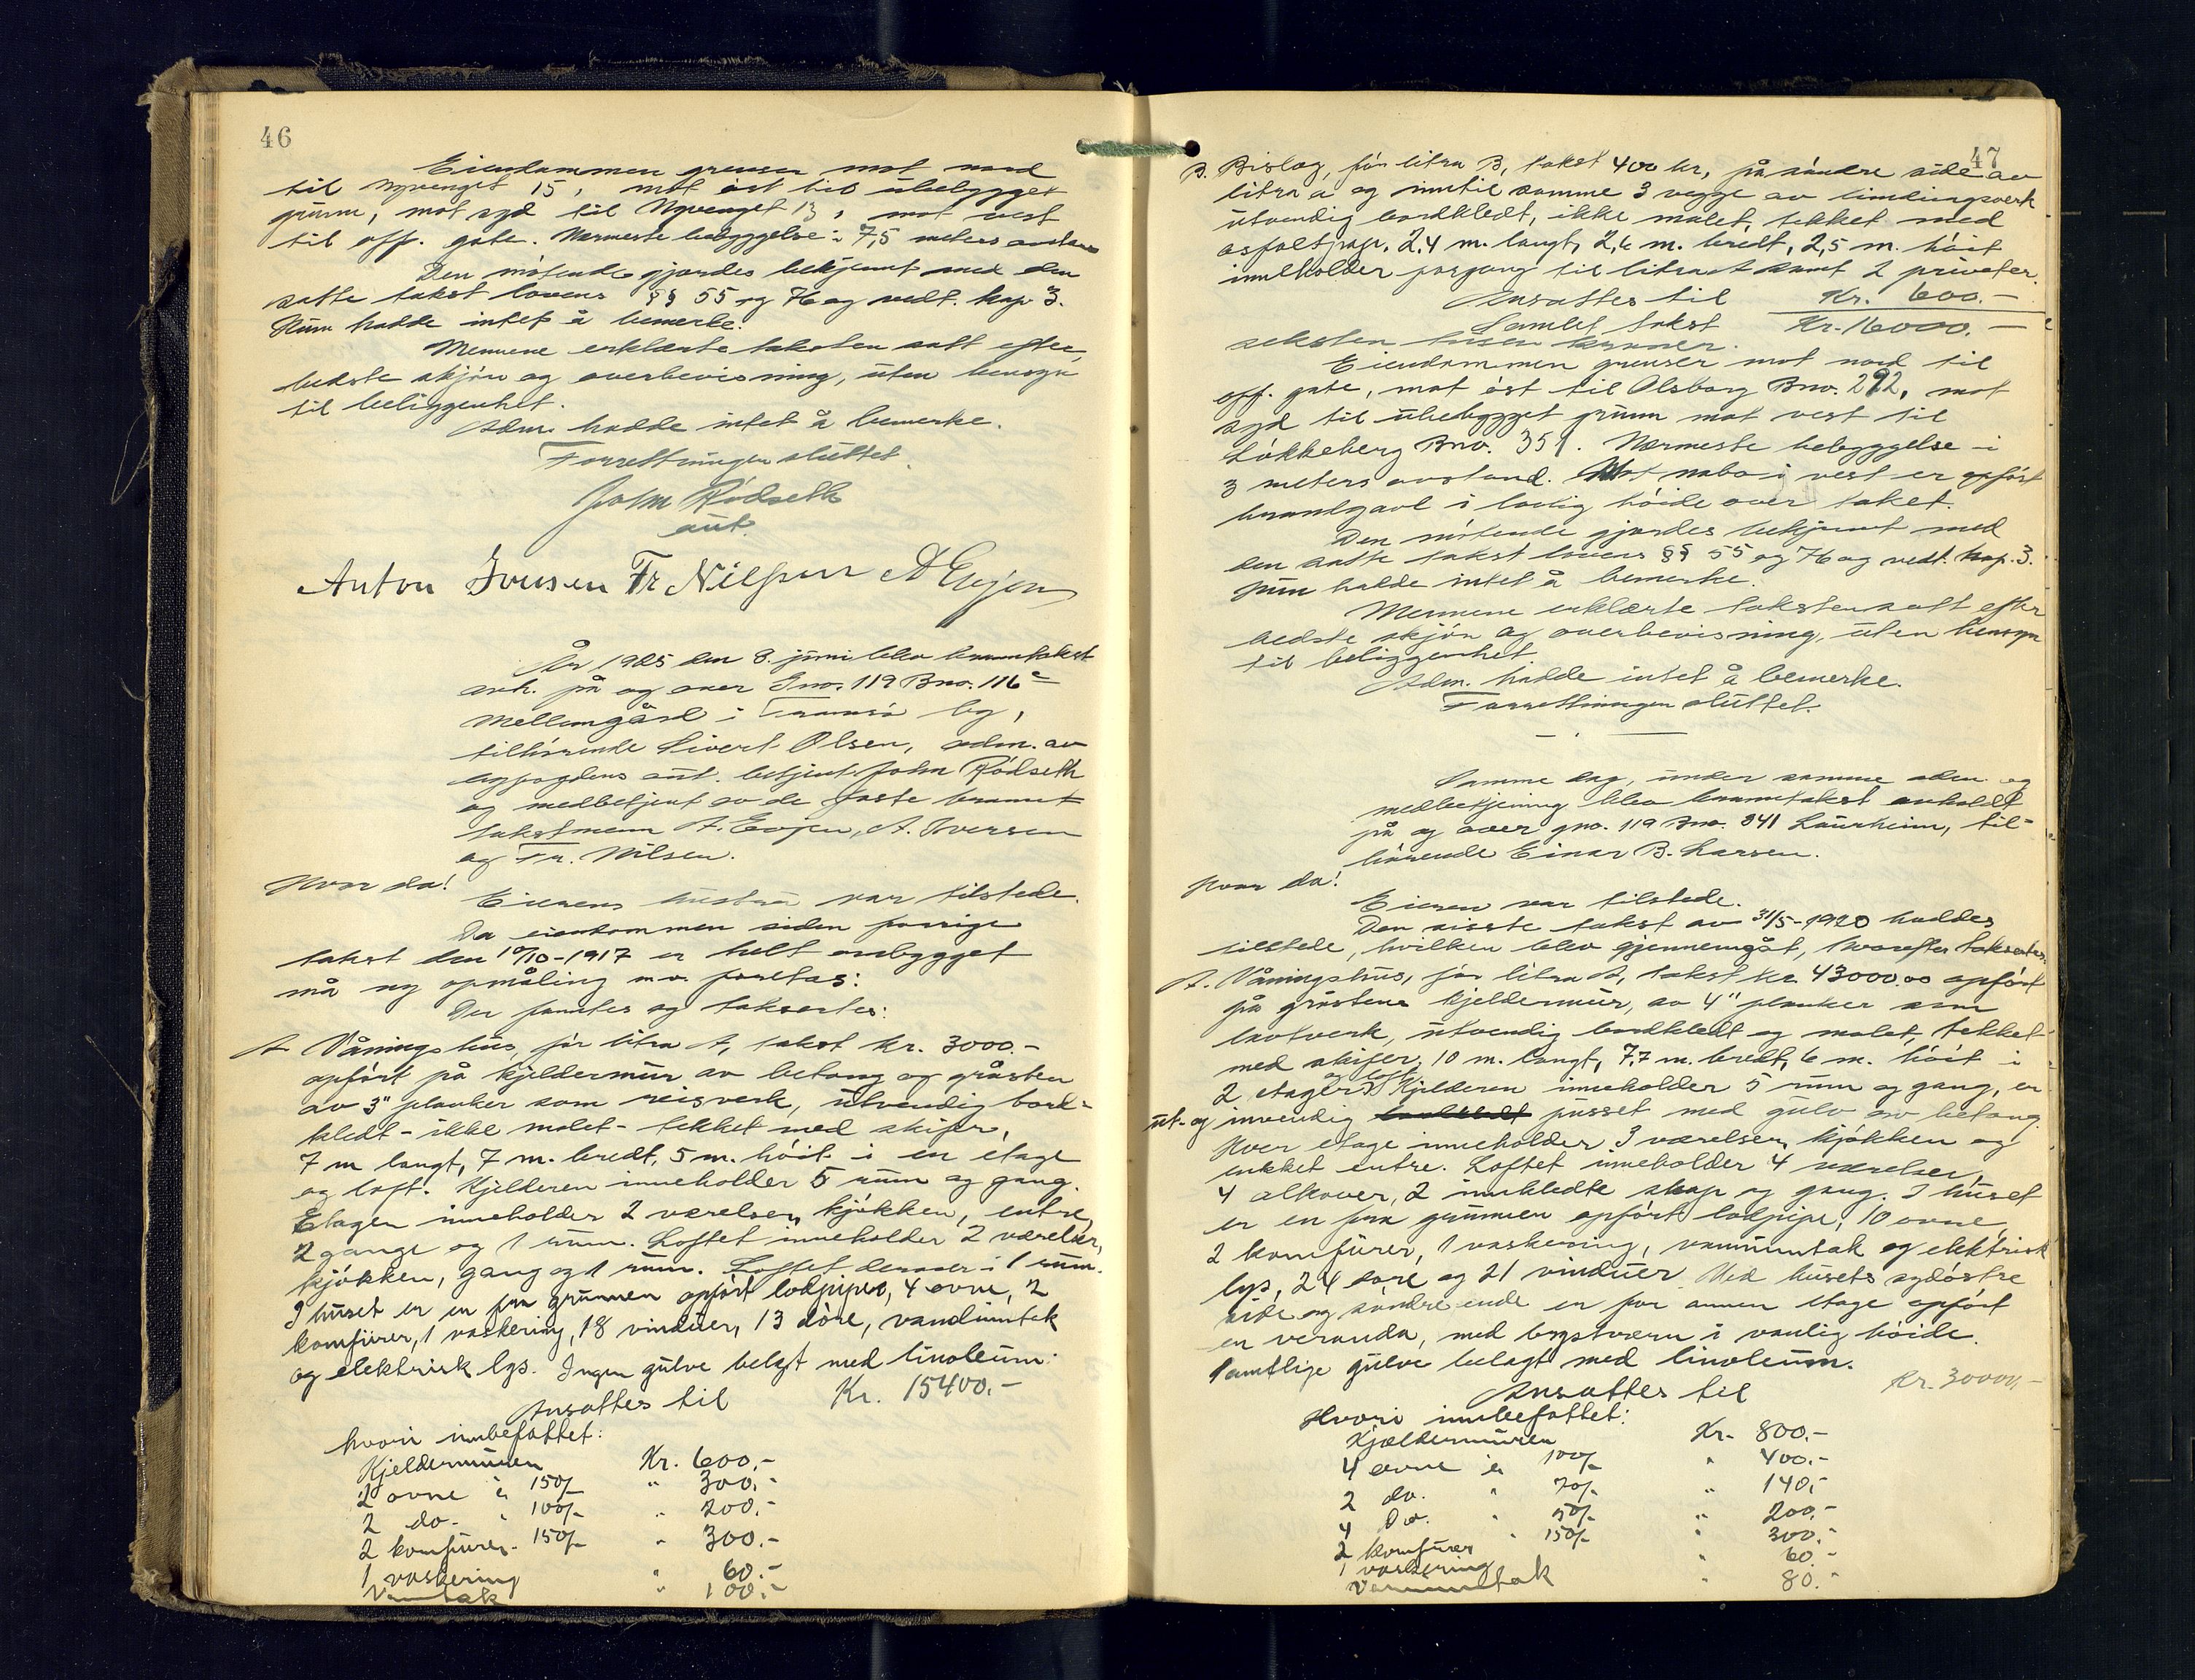 46
Eiendommen grenser mot nord
til Nyvenget 15, mot øst til ubebygget
grunn, mot syd til Nyvenget 13, mot vest
til off. gate. Nærmeste bebyggelse i 7,5 meters avstand
Den møtende gjordes bekjent med den
satte takst lovens §§ 55 og 76 og vedt. kap 3.
Hun hadde intet å bemerke.
Mennene erklærte taksten satt efter
bedste skjøn og overbevisning, uten hensyn
til beliggenhet.
Adm. hadde intet å bemerke.
Forretningen sluttet.
John Rødseth
aut.
Anton Iversen Fr Nilssen A Evjen
År 1925 den 8. juni blev branntakst
avh. på og over Gno. 119 Bno. 116c
Mellemgård i Tromsø by,
tilhørende Sivert Olsen, adm. av
byfogdens aut. betjent John Rødseth
og medbetjent av de faste brannt
takstmenn A. Evjen, A. Iversen
og Fr. Nilsen.
Hvor da!
Eierens hustru var tilstede.
Da eiendommen siden forrige
takst den 10/10-1917 er helt ombygget
må ny opmåling m.v. foretas:
Der fantes og taksertes:
A. Våningshus, før litra A, takst Kr. 3000.-
opført på kjeldermur av betong og gråsten
av 3" planker som reisverk, utvendig bord-
kledt - ikke malet - tekket med skifer,
7 m langt, 7 m. bredt, 5 m. høit i en etage
og loft. Kjelderen inneholder 5 rum og gang.
Etagen inneholder 2 værelser, kjøkken, entre,
2 gange og 1 rum. Loftet inneholder 2 værelser,
kjøkken, gang og 1 rum. Loftet derover i 1 rum.
I huset er en fra grunnen opført lodpipe, 4 ovne, 2
komfurer, 1 vaskering, 18 vinduer, 13 døre, vandinntak
og elektrisk lys. Ingen gulve belagt med linoleum.
Ansattes til Kr. 15400.-
hvori innbefattet:
Kjeldermuren Kr. 600.-
2 ovne à 150/- " 300.-
2 do. " 100/- " 200.-
2 komfurer " 150/- " 300.-
1 vaskering " 60.-
Vanntak " 100.-
47
B. Bislag, før litra B, takst 400 kr, på søndre side av
litra a og inntil samme 3 vegge av bindingsverk
utvendig bordkledt, ikke malet, tekket med
asfaltpap, 2,4 m. langt, 2,6 m. bredt, 2,5 m. høit
inneholder forgang til litra A samt 2 priveter.
Ansattes til Kr. 600.-
Samlet takst Kr. 16000.-
seksten tusen kroner.
Eiendommen grenser mot nord til
off. gate, mot øst til Olsborg Bno. 292, mot
syd til ubebygget grunn mot vest til
Løkkeberg Bno. 351. Nærmeste bebyggelse i
3 meters avstand. Mot nabo i vest er opført
branngavl i lovlig høide over taket.
Den møtende gjordes bekjent med
den satte takst lovens §§ 55 og 76 og vedt. kap. 3.
Hun hadde intet å bemerke.
Mennene erklærte taksten satt efter
bedste skjøn og overbevisning, uten hensyn
til beliggenhet.
Adm. hadde intet å bemerke.
Forretningen sluttet.
Samme dag, under samme adm. og
medbetjening blev branntakst avholdt
på og over gno. 119 Bno. 341 Laurheim, til-
hørende Einar B. Larsen.
Hvor da!
Eieren var tilstede.
Den siste takst av 31/5-1920 haddes
tilstede, hvilken blev gjennemgåt, hvorefter taksertes:
A. Våningshus, før litra A, takst kr 43000.00 opført
på gråstens kjeldermur, av 4" planker som
lavtverk, utvendig bordkledt og malet, tekket
med skifer, 10 m. langt, 7,7 m. bredt, 6 m. høit i
2 etager og loft. Kjelderen inneholder 5 rum og gang, er
ut- og invendig pusset med gulv av betong.
Hver etage inneholder 3 værelser, kjøkken og
lukket entre. Loftet inneholder 4 værelser,
4 alkover, 2 innkledte skap og gang. I huset
er en fra grunnen opført lodpipe, 10 ovne,
2 komfurer, 1 vaskering, vanninntak og elektrisk
lys, 24 døre og 21 vinduer. Ved husets sydøstre
side og søndre ende er for annen etage opført
en veranda, med brystvern i vanlig høide.
Samtlige gulve belagt med linoleum.
Ansattes til Kr. 30000.-
Hvori innbefattet:
Kjældermuren Kr. 800.-
4 ovne à 100/- " 400.-
2 do. " 70/- " 140.-
4 do. " 50/- " 200.-
2 komfurer " 150/- " 300.-
1 vaskering " 60.-
Vanninntak " 80.-